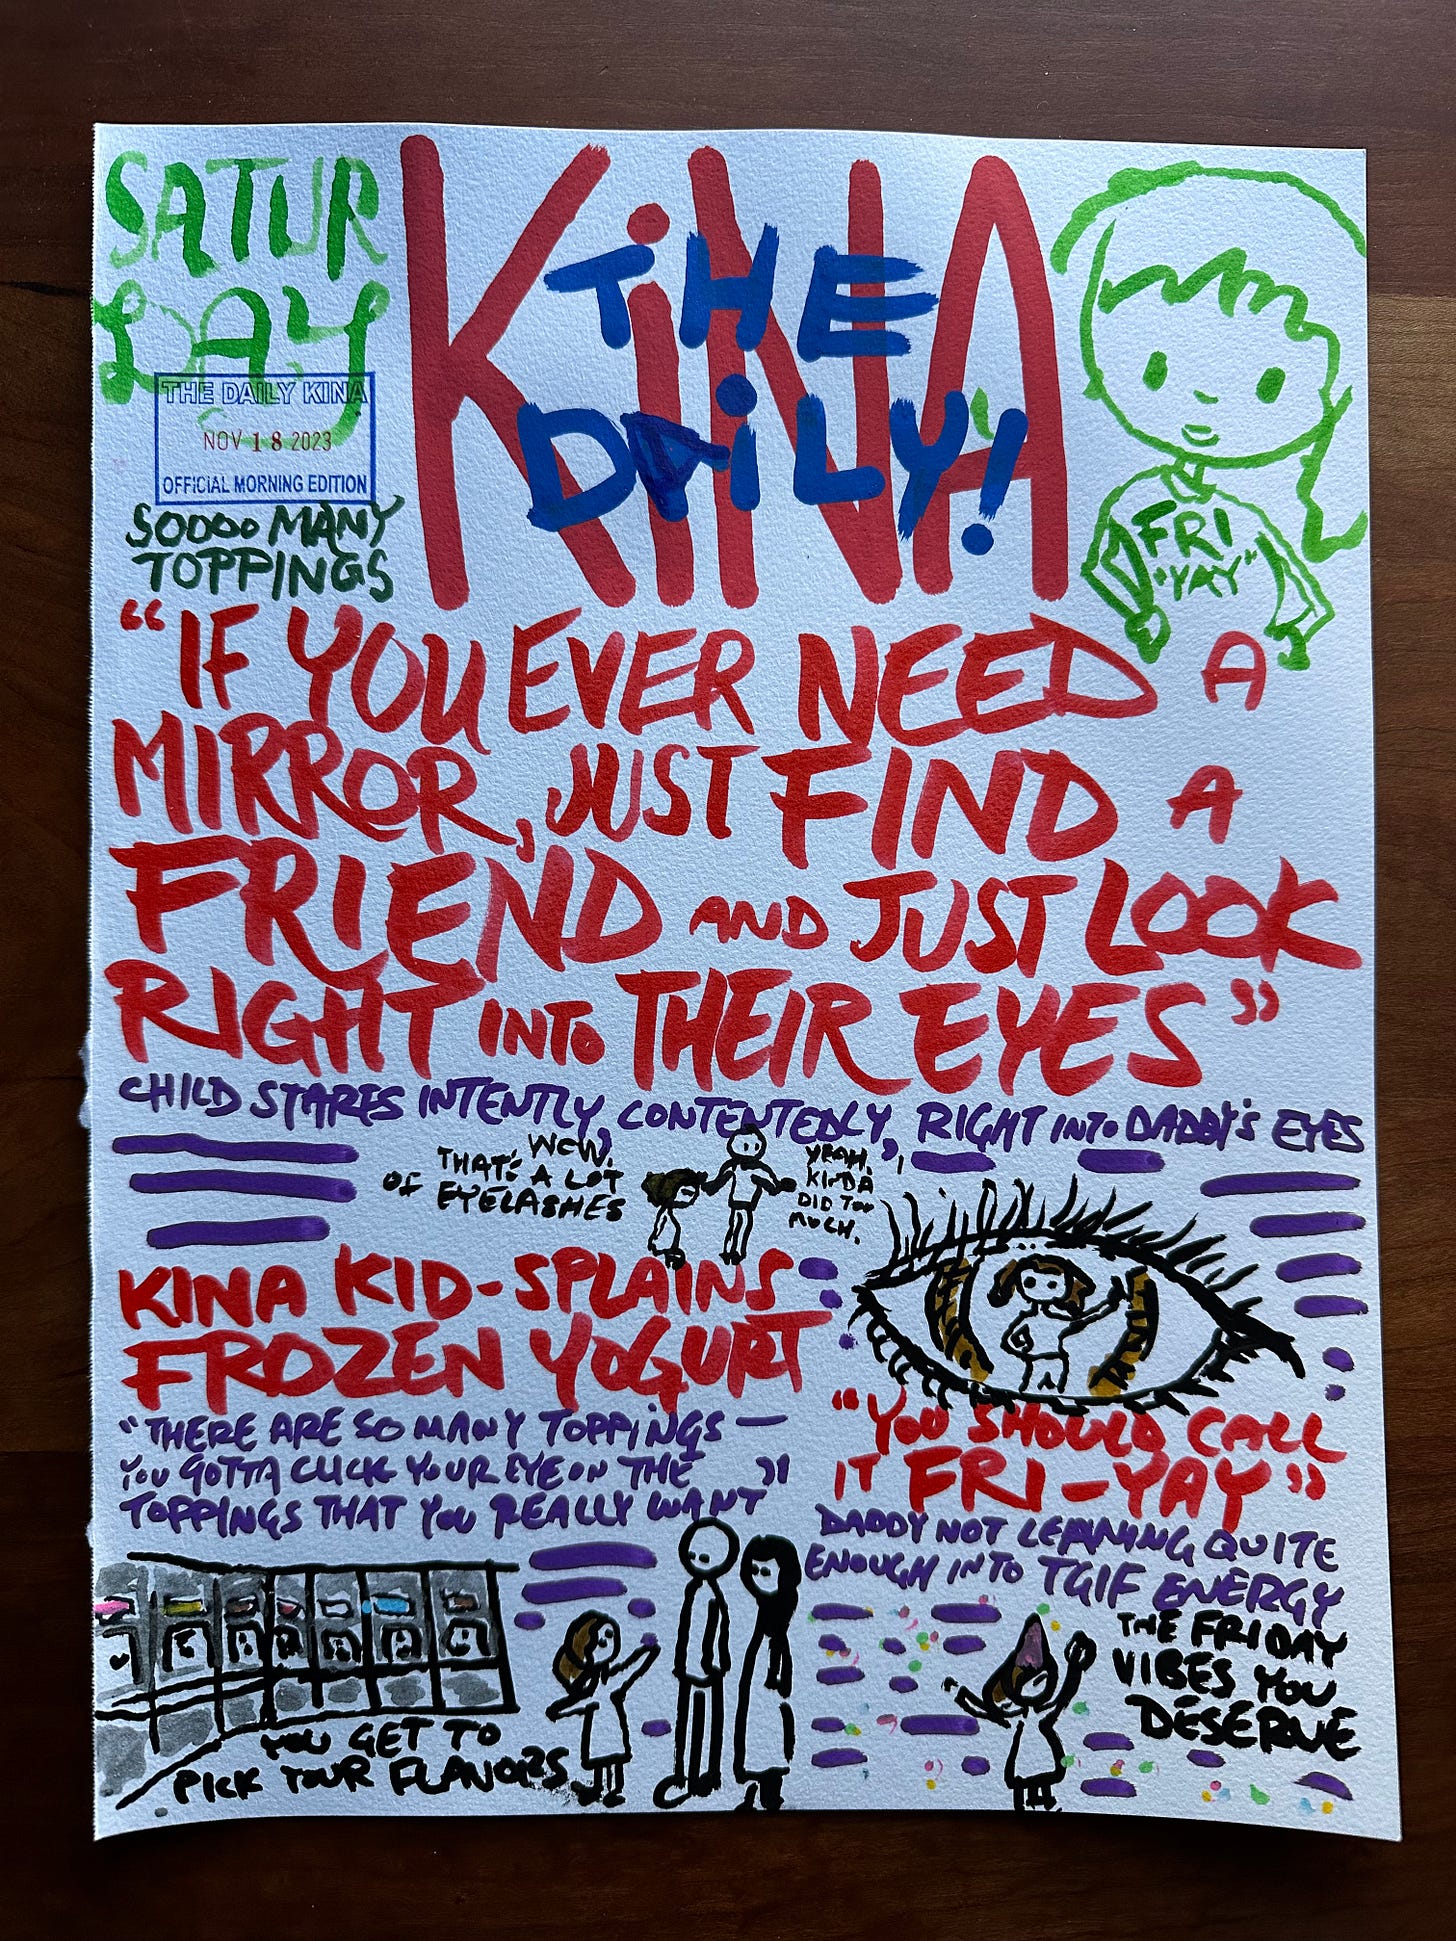 SATUR
DAY
KiNA
THE
DAiLY!
THE DAILY KINA
NOV 18 2023
OFFICIAL MORNING EDITION
SOOOO MANY
TOPPINGS
FRI
"YAY"
"IF YOU EVER NEED A
MIRROR, JUST FIND A
FRIEND AND JUST LOOK
RIGHT INTO THEIR EYES"
CHILD STARES INTENTLY, CONTENTEDLY, RIGHT INTO DADDY'S EYES
WOW.
THAT'S A LOT
OF EYELASHES
YEAH.
KINDA
DID TOO
MUCH.
KINA KID-SPLAINS
FROZEN YOGURT
"THERE ARE SO MANY TOPPiNGS —
YOU GOTTA CLICK YOUR EYE ON THE
TOPPINGS THAT YOU REALLY WANT"
YOU GET TO
PICK YOUR FLAVORS
"YOU SHOULD CALL
IT FRI-YAY"
DADDY NOT LEANING QUITE
ENOUGH INTO TGIF ENERGY
THE FRIDAY
VIBES YOU
DESERVE